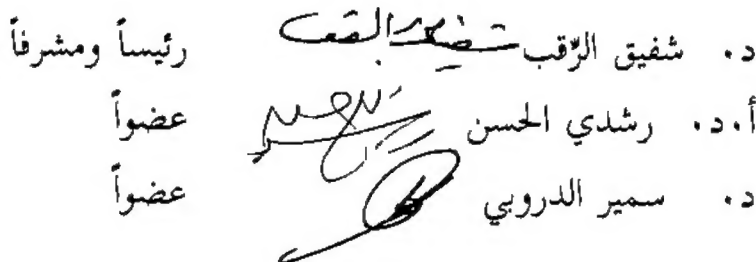 د. شفيق الرّقب رئيساً ومشرفاً
أ.د. رشدي الحسن عضواً
د. سمير الدروبي عضواً